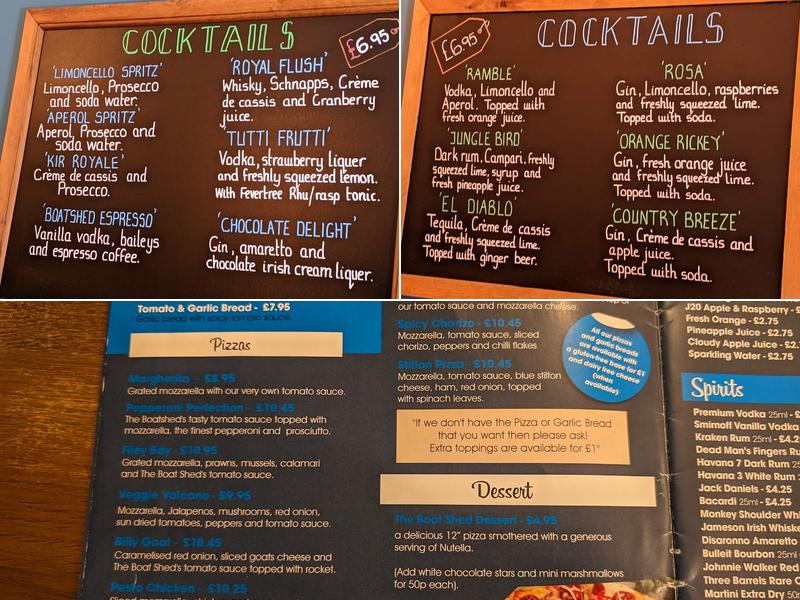 COCKTAILS
£6.95
'LIMONCELLO SPRITZ'
Limoncello, Prosecco
and soda water.
'APEROL SPRITZ'
Aperol, Prosecco and
soda water.
'KIR ROYALE'
Crème de cassis and
Prosecco.
'BOATSHED ESPRESSO'
Vanilla vodka, baileys
and espresso coffee.
'ROYAL FLUSH'
Whisky, Schnapps, Crème
de cassis and Cranberry
juice.
'TUTTI FRUTTI'
Vodka, strawberry liquer
and freshly squeezed lemon.
With Fevertree Rhu/rasp tonic.
'CHOCOLATE DELIGHT'
Gin, amaretto and
chocolate irish cream liquer.
COCKTAILS
£6.95
'RAMBLE'
Vodka, Limoncello and
Aperol. Topped with
fresh orange juice.
'JUNGLE BIRD'
Dark rum, Campari, freshly
squeezed lime, syrup and
fresh pineapple juice.
'EL DIABLO'
Tequila, Crème de cassis
and freshly squeezed lime.
Topped with ginger beer.
'ROSA'
Gin, Limoncello, raspberries
and freshly squeezed lime.
Topped with soda.
'ORANGE RICKEY'
Gin, fresh orange juice
and freshly squeezed lime.
Topped with soda.
'COUNTRY BREEZE'
Gin, Crème de cassis and
apple juice.
Topped with soda.
Tomato & Garlic Bread - £7.95
Garlic bread with spicy tomato sauce.
Pizzas
Margherita - £8.95
Grated mozzarella with our very own tomato sauce.
Pepperoni Perfection - £10.45
The Boatshed's tasty tomato sauce topped with
mozzarella, the finest pepperoni and prosciutto.
Filey Bay - £10.95
Grated mozzarella, prawns, mussels, calamari
and The Boat Shed's tomato sauce.
Veggie Volcano - £9.95
Mozzarella, Jalapenos, mushrooms, red onion,
sun dried tomatoes, peppers and tomato sauce.
Billy Goat - £10.45
Caramelised red onion, sliced goats cheese and
The Boat Shed's tomato sauce topped with rocket.
Pesto Chicken - £10.25
our tomato sauce and mozzarella cheese.
Spicy Chorizo - £10.45
Mozzarella, tomato sauce, sliced
chorizo, peppers and chilli flakes
Stilton Pizza - £10.45
Mozzarella, tomato sauce, blue stilton
cheese, ham, red onion, topped
with spinach leaves.
All our pizzas
and garlic breads
are available with
a gluten-free base for £1
and dairy free cheese
(when
available)
"If we don't have the Pizza or Garlic Bread
that you want then please ask!
Extra toppings are available for £1"
Dessert
The Boat Shed Dessert - £4.95
a delicious 12" pizza smothered with a generous
serving of Nutella.
(Add white chocolate stars and mini marshmallows
for 50p each).
J20 Apple & Raspberry -
Fresh Orange - £2.75
Pineapple Juice - £2.75
Cloudy Apple Juice - £2.
Sparkling Water - £2.75
Spirits
Premium Vodka 25ml -
Smirnoff Vanilla Vodka
Kraken Rum 25ml - £4.2
Dead Man's Fingers Ru
Havana 7 Dark Rum 25
Havana 3 White Rum
Jack Daniels - £4.25
Bacardi 25ml - £4.25
Monkey Shoulder Whi
Jameson Irish Whiske
Disaronno Amaretto
Bulleit Bourbon 25ml
Johnnie Walker Red
Three Barrels Rare C
Martini Extra Dry 50m